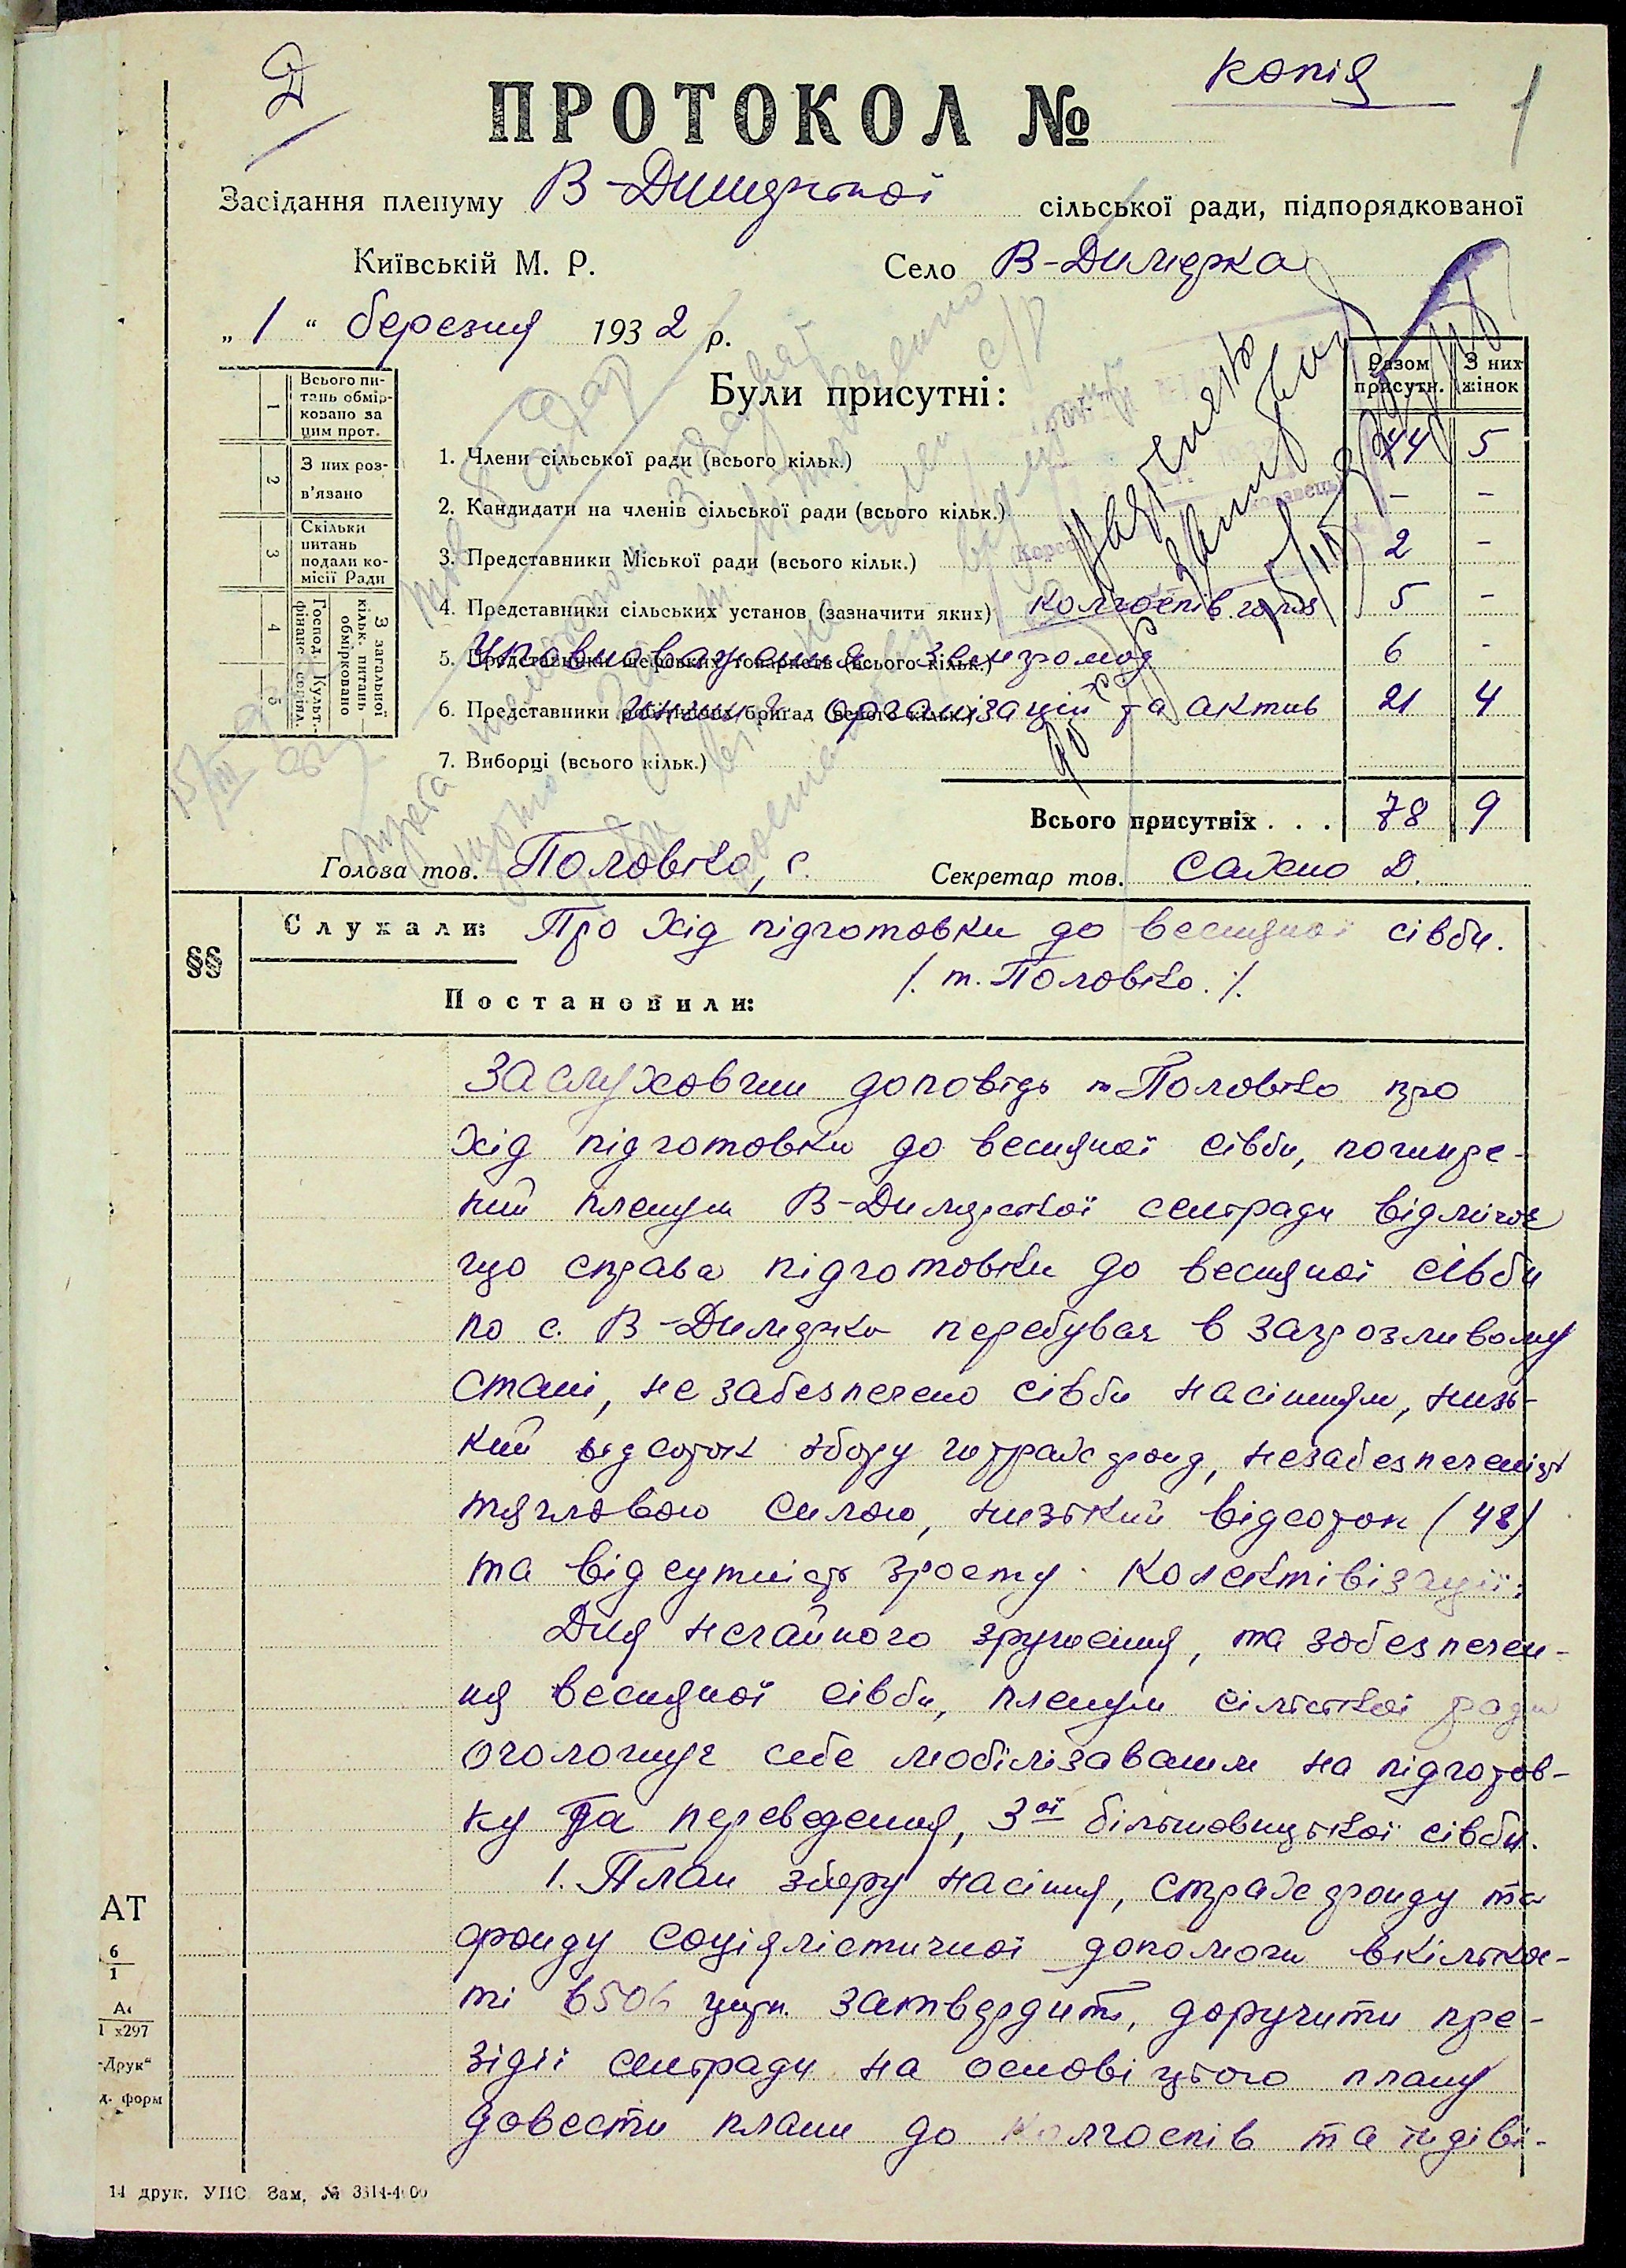 Копія
1
ПРОТОКОЛ №
Засідання пленуму В-Димерської сільської ради, підпорядкованої
Київській М. Р. Село В-Димерка
„ 1 “ березня 1932 р.
Були присутні:
Разом присутн.
З них жінок
1
Всього пи-
тань обмір-
ковано за
цим прот.
2
З них роз-
в'язано
3
Скільки
питань
подали ко-
місії Ради
4
5
З загальної
кільк. питань
обмірковано
Господ.
фінанс.
Культ.-
соціял.
1. Члени сільської ради (всього кільк.) 44 5
2. Кандидати на членів сільської ради (всього кільк.) - -
3. Представники Міської ради (всього кільк.) 2 -
4. Представники сільських установ (зазначити яких) колгоспів 5 -
5. Представники шефських товариств (всього кільк.) Уповноважених земгромад 6 -
6. Представники робітничих бригад (всього кільк.) організацій та актив 21 4
7. Виборці (всього кільк.)
Всього присутніх . . . 78 9
Голова тов. Половко, С. Секретар тов. Сахно Д.
§§
Слухали: Про хід підготовки до весняної сівби.
/. т. Половко ./.
Постановили:
Заслухавши доповідь т Половко про
хід підготовки до весняної сівби, пошире-
ний пленум В-Димерської сельради відмічає
що справа підготовки до весняної сівби
по с. В-Димерка перебуває в загрозливому
стані, не забезпечено сівби насінням, низь-
кий відсоток збору страхфонд, незабезпеченість
тягловою силою, низький відсоток (48)
та відсутність зросту колективізації.
Для негайного зрушення, та забезпечен-
ня весняної сівби, пленум сільської ради
оголошує себе мобілізаваним на підготов-
ку та переведення, 3ої більшовицької сівби.
1. План збору насіння, страхфонду та
фонду соціялістичної допомоги вкількос-
ті 6506 цнт. затвердить, доручити пре-
зідії сельради на основі цього плану
довести плани до колгоспів та індіві-
АТ
6
1
297
-Друк“
д. форм
14 друк. УПО Зам. № 3614-4000